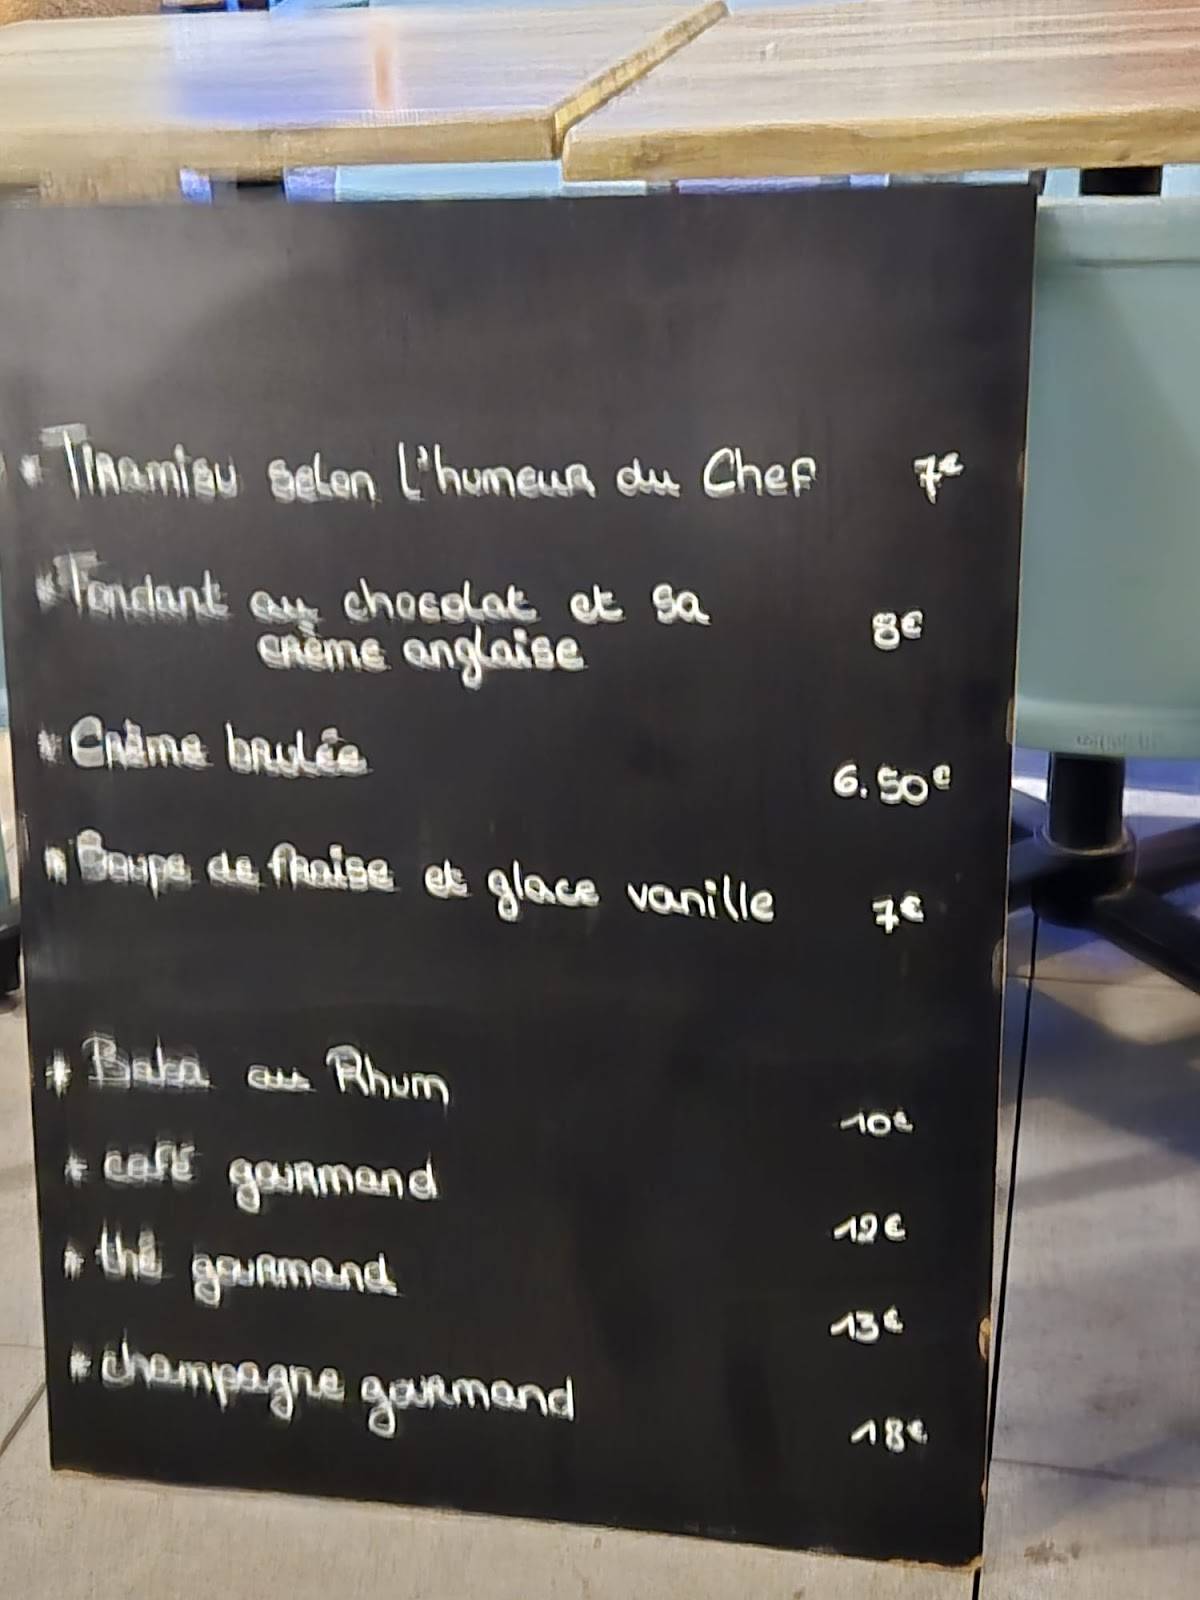 * Tiramisu selon l'humeur du Chef 7€
* Fondant au chocolat et sa
crème anglaise 8€
* Crème brulée 6.50€
* Soupe de fraise et glace vanille 7€
* Baba au Rhum 10€
* café gourmand 12€
* thé gourmand 13€
* champagne gourmand 18€